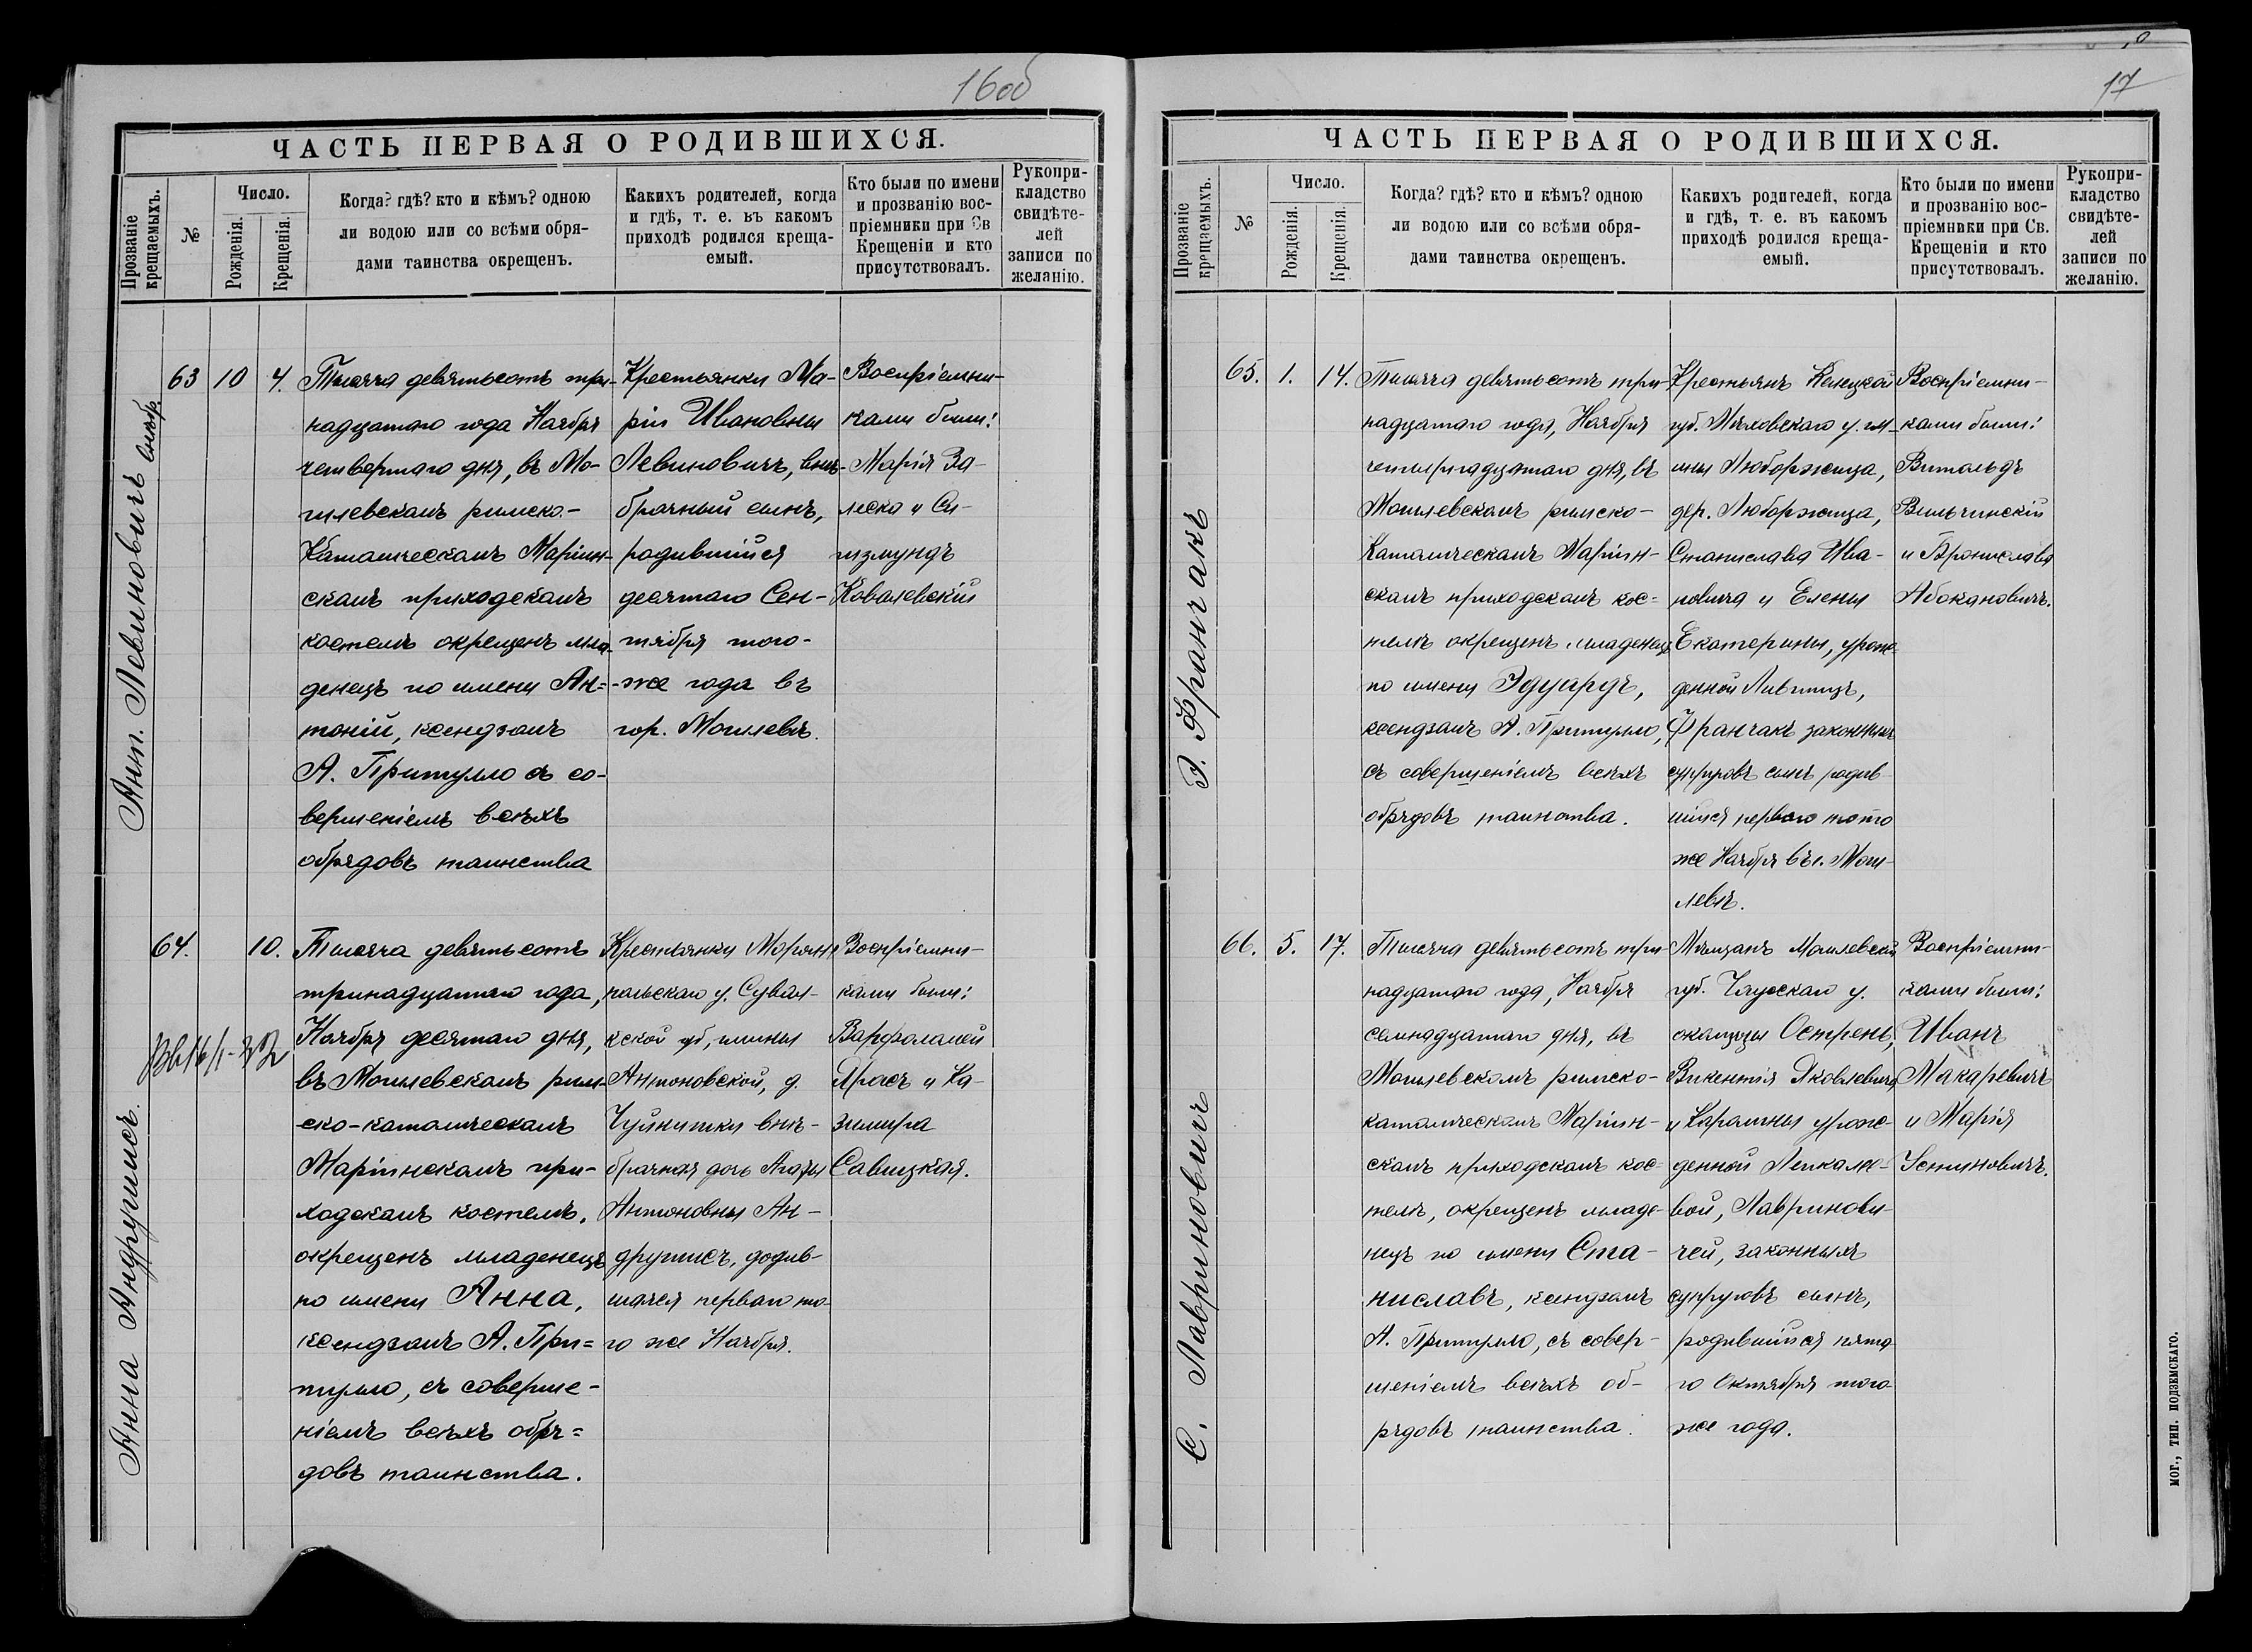 16 об
ЧАСТЬ ПЕРВАЯ О РОДИВШИХСЯ.
Прозваніе крещаемыхъ.
№
Число.
Рожденія.
Крещенія.
Когда? гдѣ? кто и кѣмъ? одною
ли водою или со всѣми обря-
дами таинства окрещенъ.
Какихъ родителей, когда
и гдѣ, т. е. въ какомъ
приходѣ родился креща-
емый.
Кто были по имени
и прозванію вос-
пріемники при Св
Крещеніи и кто
присутствовалъ.
Рукопри-
кладство
свидѣте-
лей
записи по
желанію.
Ант. Левиновичъ внѣбр.
63
10
4.
Тысяча девятьсотъ три-
надцатаго года Ноября
четвертаго дня, въ Мо-
гилевскомъ римско-
Католическомъ Маріин-
скомъ приходскомъ
костелѣ окрещенъ мла-
денецъ по имени Ан=
тоній, ксендзомъ
А. Притулло съ со-
вершеніемъ всѣхъ
обрядовъ таинства
Крестьянки Ма-
ріи Ивановны
Левиновичъ, внѣ-
брачный сынъ,
родившійся
десятаго Сен-
тября того-
-же года въ
гор. Могилевѣ.
Воспріемни-
ками были:
Марія За-
леско и Си-
гизмундъ
Ковалевскій
Анна Андрушисъ.
64.
10.
Тысяча девятьсотъ
тринадцатаго года,
Ноября десятаго дня,
въ Могилевскомъ рим-
ско-католическомъ
Маріинскомъ при-
ходскомъ костелѣ,
окрещенъ младенецъ
по имени Анна,
ксендзомъ А. При=
тулло, съ соверше-
ніемъ всѣхъ обря=
довъ таинства.
Крестьянки Маріам-
польскаго у. Сувал-
кской губ, гмины
Антоновской, д.
Чуйнишки внѣ-
брачная дочь Агаты
Антоновны Ан-
друшисъ, родив-
шаяся перваго то-
го же Ноября.
Воспріемни-
ками были:
Варфоломей
Ярасъ и Ка-
зимира
Савицкая.
17
ЧАСТЬ ПЕРВАЯ О РОДИВШИХСЯ.
Прозваніе крещаемыхъ.
№
Число.
Рожденія.
Крещенія.
Когда? гдѣ? кто и кѣмъ? одною
ли водою или со всѣми обря-
дами таинства окрещенъ.
Какихъ родителей, когда
и гдѣ, т. е. въ какомъ
приходѣ родился креща-
емый.
Кто были по имени
и прозванію вос-
пріемники при Св.
Крещеніи и кто
присутствовалъ.
Рукопри-
кладство
свидѣте-
лей
записи по
желанію.
Э. Франчакъ
65.
1.
14.
Тысяча девятьсотъ три-
надцатаго года, Ноября
четырнадцатаго дня, въ
Могилевскомъ римско-
Католическомъ Маріин-
скомъ приходскомъ кос-
телѣ окрещенъ младенецъ
по имени Эдуардъ,
ксендзомъ А. Притулло,
съ совершеніемъ всѣхъ
обрядовъ таинства.
Крестьянъ Келецкой
губ. Мѣховскаго у. гм-
ины Люборжица,
дер. Люборжица,
Станислава Ива-
новича и Елены
Екатерины, урож-
денной Лившицъ,
Франчакъ законныхъ
супруговъ сынъ родив-
шійся перваго того
же Ноября въ г. Моги-
левѣ.
Воспріемни-
ками были:
Витольдъ
Вильчинскій
и Бронислава
Абокановичъ.
С. Лавриновичъ
66.
5.
17.
Тысяча девятьсотъ три
надцатаго года, Ноября
семнадцатаго дня, въ
Могилевскомъ римско-
католическомъ Маріин-
скомъ приходскомъ кос-
телѣ, окрещенъ младе-
нецъ по имени Ста-
ниславъ, ксендзомъ
А. Притулло, съ совер-
шеніемъ всѣхъ об-
рядовъ таинства.
Мѣщанъ Могилевской
губ. Чаусскаго у.
околицы Острень,
Викентія Яковлевича
и Каролины урож-
денной Лепкало-
вой, Лавринови-
чей, законныхъ
супруговъ сынъ,
родившійся пята-
го Октября того
же года.
Воспріемни-
ками были:
Иванъ
Макаревичъ
и Марія
Устиновичъ.
МОГ., ТИП. ПОДЗЕМСКАГО.